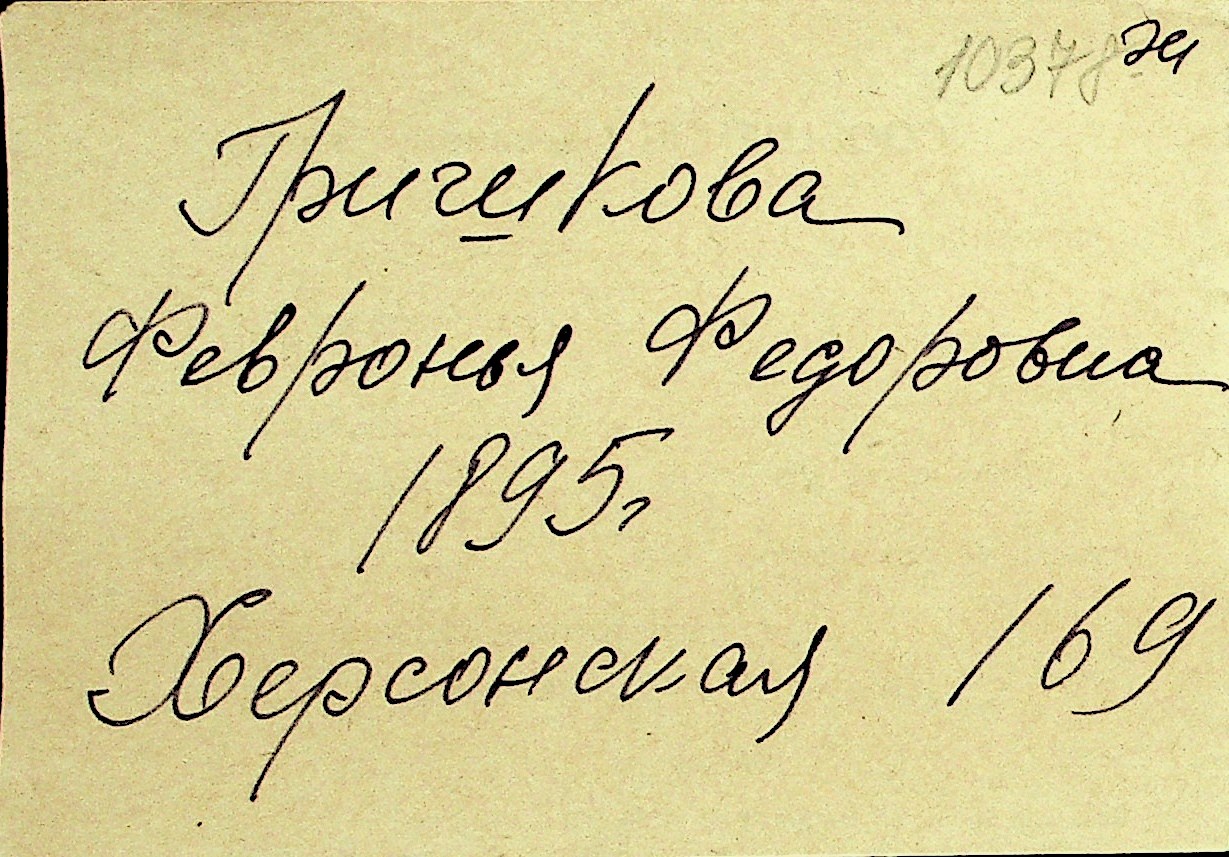 10378
Гришкова
Февронья Федоровна
1895г
Херсонская 169